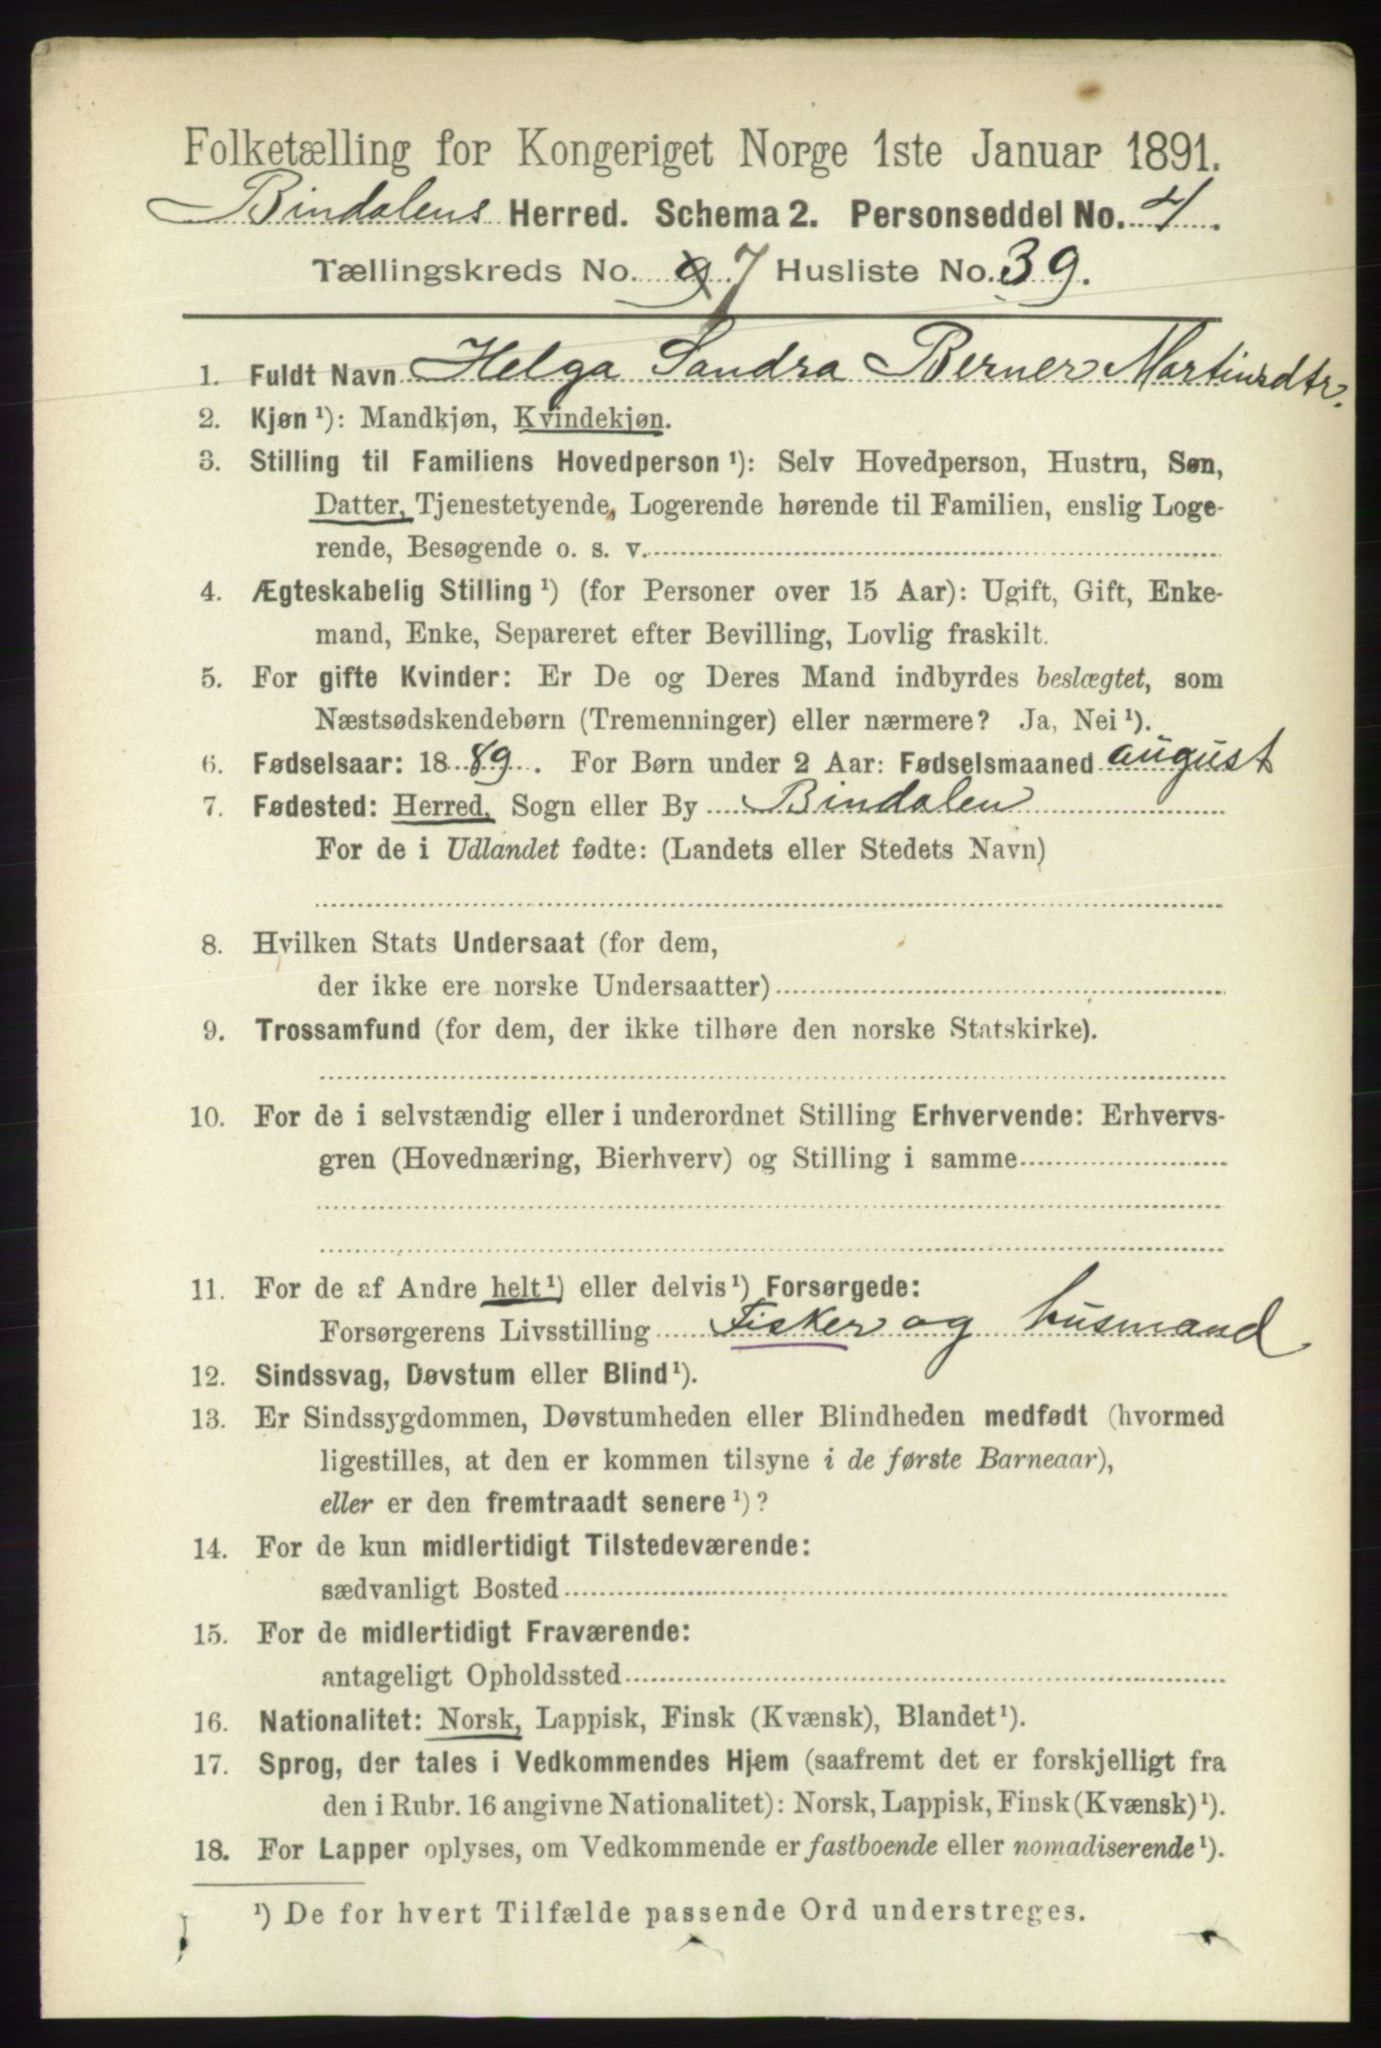 Folketælling for Kongeriget Norge 1ste Januar 1891.
Bindalens Herred. Schema 2. Personseddel No. 4.
Tællingskreds No. 9 7 Husliste No. 39.
1. Fuldt Navn Helga Sandra Berner Martinsdtr.
2. Kjøn ¹): Mandkjøn, Kvindekjøn.
3. Stilling til Familiens Hovedperson ¹): Selv Hovedperson, Hustru, Søn,
Datter, Tjenestetyende, Logerende hørende til Familien, enslig Loge-
rende, Besøgende o. s. v.
4. Ægteskabelig Stilling ¹) (for Personer over 15 Aar): Ugift, Gift, Enke-
mand, Enke, Separeret efter Bevilling, Lovlig fraskilt.
5. For gifte Kvinder: Er De og Deres Mand indbyrdes beslægtet, som
Næstsødskendebørn (Tremenninger) eller nærmere? Ja, Nei ¹).
6. Fødselsaar: 1889. For Børn under 2 Aar: Fødselsmaaned august
7. Fødested: Herred, Sogn eller By Bindalen
For de i Udlandet fødte: (Landets eller Stedets Navn)
8. Hvilken Stats Undersaat (for dem,
der ikke ere norske Undersaatter)
9. Trossamfund (for dem, der ikke tilhøre den norske Statskirke).
10. For de i selvstændig eller i underordnet Stilling Erhvervende: Erhvervs-
gren (Hovednæring, Bierhverv) og Stilling i samme
11. For de af Andre helt ¹) eller delvis ¹) Forsørgede:
Forsørgerens Livsstilling Fisker og husmand
12. Sindssvag, Døvstum eller Blind ¹).
13. Er Sindssygdommen, Døvstumheden eller Blindheden medfødt (hvormed
ligestilles, at den er kommen tilsyne i de første Barneaar),
eller er den fremtraadt senere ¹)?
14. For de kun midlertidigt Tilstedeværende:
sædvanligt Bosted
15. For de midlertidigt Fraværende:
antageligt Opholdssted
16. Nationalitet: Norsk, Lappisk, Finsk (Kvænsk), Blandet ¹).
17. Sprog, der tales i Vedkommendes Hjem (saafremt det er forskjelligt fra
den i Rubr. 16 angivne Nationalitet): Norsk, Lappisk, Finsk (Kvænsk) ¹).
18. For Lapper oplyses, om Vedkommende er fastboende eller nomadiserende ¹).
¹) De for hvert Tilfælde passende Ord understreges.